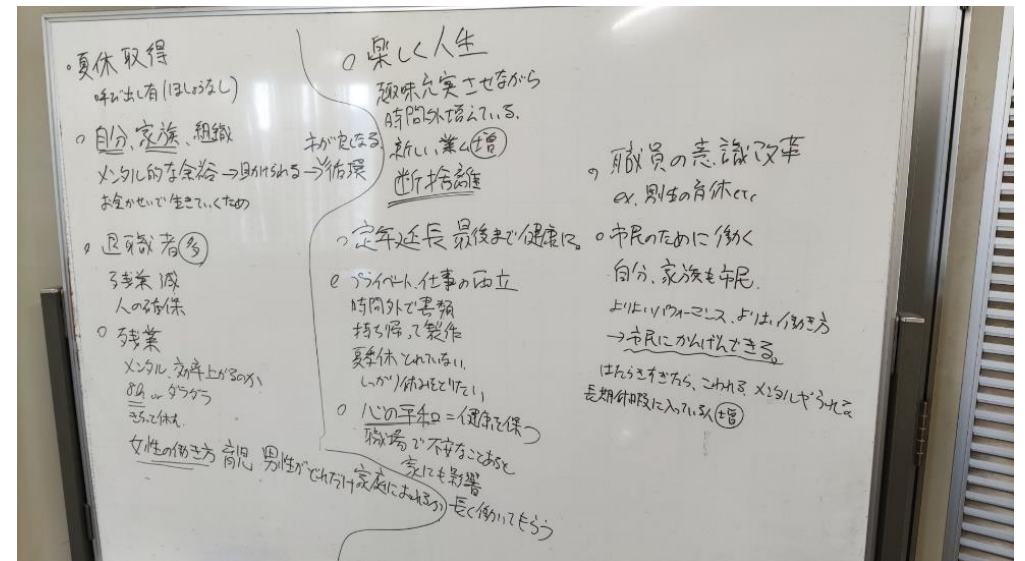 ・夏休取得
呼び出し有(ほしょうなし)
○自分、家族、組織
メンタル的な余裕→助けられる→循環
お金かせいで生きていくため
・退職者多
残業減
人の確保
○残業
メンタル、効率上がるのか、
8h or ダラダラ
きちっと休む
女性の働き方 育児 男性がどれだけ家庭におれるか
○楽しく人生
趣味充実させながら
時間外増えている。
新しい業ム増
断捨離
○定年延長 最後まで健康に。
○プライベート、仕事の両立
時間外で書類
持ち帰って製作
夏季休とれていない、
しっかり休みをとりたい
○心の平和=健康を保つ
職場で不安なことあると
家にも影響
長く働いてもらう
○職員の意識改革
ex. 男性の育休etc
○市民のために働く
自分、家族も市民.
よりよいパフォーマンス、よりよい働き方
→市民にかんげんできる。
はたらきすぎたら、こわれる メンタルやられて
長期休暇に入っている人増